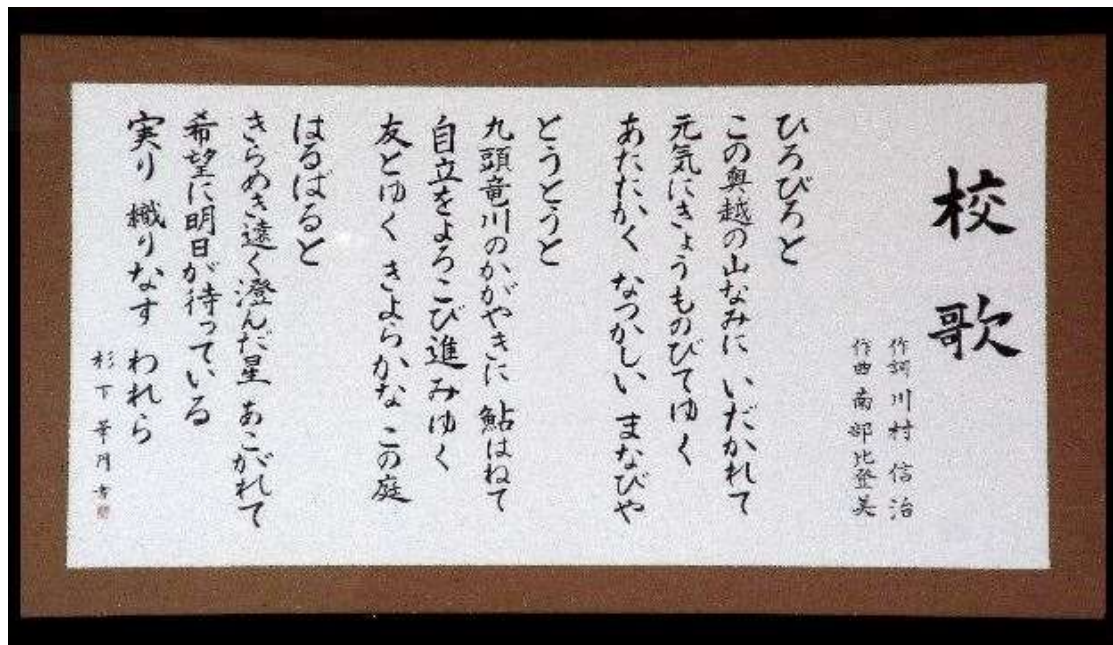 校歌
作詞 川村信治
作曲 南部比登美
ひろびろと
この奥越の山なみに いだかれて
元気にきょうものびてゆく
あたたかく なつかしい まなびや
とうとうと
九頭竜川のかがやきに 鮎はねて
自立をよろこび進みゆく
友とゆく きよらかな この庭
はるばると
きらめき遠く澄んだ星 あこがれて
希望に明日が待っている
実り 織りなす われら
杉下